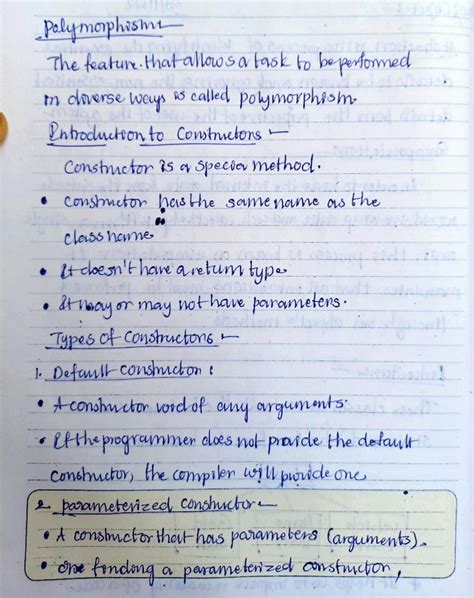 Polymorphism
The feature that allows a task to be performed
in diverse ways is called polymorphism.
Introduction to Constructors
Constructor is a special method.
• Constructor has the same name as the
class name
• It doesn't have a return type
• It may or may not have parameters.
Types of Constructors
1. Default Constructor:
• A constructor void of any arguments.
• If the programmer does not provide the default
Constructor, the compiler will provide one
2 parameterized Constructor
• A constructor that has parameters (arguments).
• one a parameterized constructor,